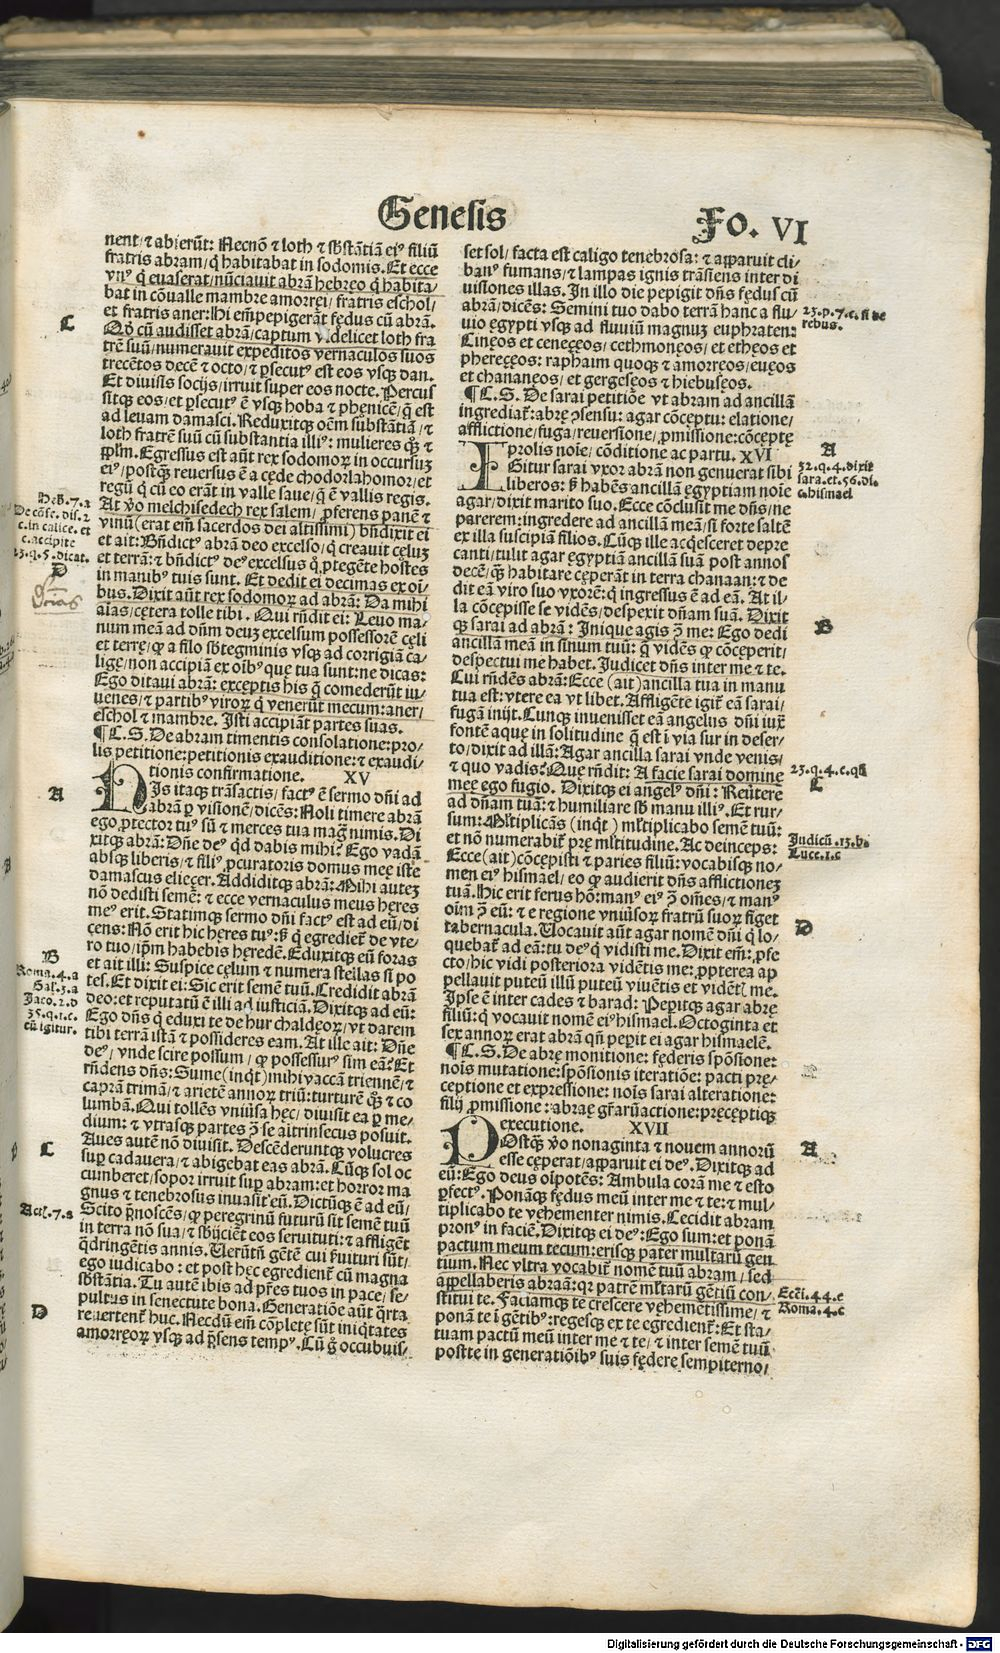 Genesis
Fo. VI
nent/ ⁊ abierūt: Necnō ⁊ loth ⁊ sbstātiā eiꝰ filiū
fratris abram/ q̄ habitabat in sodomis. Et ecce
vnꝰ q̄ euaserat/ nūciauit abrā hebreo q̄ habita-
bat in cōualle mambre amorręi/ fratris eschol/
et fratris aner: hi em̄ pepigerāt fędus cū abrā.
Qđ cū audisset abrā/ captum v₃delicet loth fra
trē suū/ numerauit expeditos vernaculos suos
trecētos decē ⁊ octo/ ⁊ ꝑsecutꝰ est eos vsq₃ dan.
Et diuisis socijs/ irruit super eos nocte. Percus
sitq₃ eos/ et ꝑsecutꝰ ē vsq₃ hoba ⁊ phenicē/ q̄ est
ad leuam damasci. Reduxitq₃ oēm substātiā/ ⁊
loth fratrē suū cū substantia illiꝰ: mulieres q₃ ⁊
ppl̄m. Egressus est aūt rex sodomoꝝ in occursuꝫ
eiꝰ/ postq₃ reuersus ē a cęde chodorlahomor/ et
regū q̄ cū eo erāt in valle saue/ q̄ ē vallis regis.
At v̄o melchisedech rex salem/ ꝓferens panē ⁊
vinū (erat em̄ sacerdos dei altissimi) bn̄dixit ei
et ait: Bn̄dictꝰ abrā deo excelso/ q̄ creauit cęluꝫ
et terrā: ⁊ bn̄dictꝰ deꝰ excelsus q̄ ꝓtegēte hostes
in manibꝰ tuis sunt. Et dedit ei decimas ex oī-
bus. Dixit aūt rex sodomoꝝ ad abrā: Da mihi
aīas/ cętera tolle tibi. Qui rn̄dit ei: Leuo ma-
num meā ad dn̄m deuꝫ excelsum possessorē cęli
et terrę/ ꝙ a filo sb̄tegminis vsq₃ ad corrigiā ca-
ligę/ non accipiā ex oībꝰ que tua sunt: ne dicas:
Ego ditaui abrā: exceptis his q̄ comederūt iu-
uenes/ ⁊ partibꝰ viroꝝ q̄ venerūt mecum: aner/
eschol ⁊ mambre. Isti accipiāt partes suas.
¶C.S. De abram timentis consolatione: pro-
lis petitione: petitionis exauditione: ⁊ exaudi-
tionis confirmatione. XV
HIs itaq₃ trāsactis/ factꝰ ē sermo dn̄i ad
abrā ꝑ visionē/ dicēs: Noli timere abrā
ego ꝓtector tuꝰ sū ⁊ merces tua mag̃ nimis. Di
xitq₃ abrā: Dn̄e deꝰ qd dabis mihi? Ego vadā
absq₃ liberis/ ⁊ filiꝰ ꝓcuratoris domus meę iste
damascus elieçer. Addiditq₃ abrā: Mihi auteꝫ
nō dedisti semē: ⁊ ecce vernaculus meus hęres
meꝰ erit. Statimq₃ sermo dn̄i factꝰ est ad eū/ di
cens: Nō erit hic hęres tuꝰ: sꝫ q̄ egredieť de vte-
ro tuo/ ip̄m habebis hęredē. Eduxitq₃ eū foras
et ait illi: Suspice cęlum ⁊ numera stellas si po
tes. Et dixit ei: Sic erit semē tuū. Credidit abrā
deo: et reputatū ē illi ad iusticiā. Dixitq₃ ad eū:
Ego dn̄s q̄ eduxi te de hur chaldęoꝝ/ vt darem
tibi terrā istā ⁊ possideres eam. At ille ait: Dn̄e
deꝰ/ vnde scire possum/ ꝙ possessurꝰ sim eā? Et
rn̄dens dn̄s: Sume (inqt) mihi vaccā triennē/ ⁊
caprā trimā/ ⁊ arietē annoꝝ triū: turturē q₃ ⁊ co
lumbā. Qui tollēs vniūsa hęc/ diuisit ea ꝑ me-
dium: ⁊ vtrasq₃ partes ↄ̄ se aītrinsecus posuit.
Aues autē nō diuisit. Descēderuntq₃ volucres
suꝑ cadauera/ ⁊ abigebat eas abrā. Cūq₃ sol oc
cumberet/ sopor irruit suꝑ abram: et horror ma
gnus ⁊ tenebrosus inuasit eū. Dictūq₃ ē ad eū/
Scito p̄noscēs/ ꝙ peregrinū futurū sit semē tuū
in terra nō sua/ ⁊ sb̄ijciēt eos seruituti: ⁊ affligēt
q̄dringētis annis. Uerūtn̄ gētē cui ẜuituri sūt/
ego iudicabo: et post hęc egredienť cū magna
sb̄stātia. Tu autē ibis ad pr̄es tuos in pace/ se-
pultus in senectute bona. Generatiōe aūt q̄rta
reuertenť huc. Necdū em̄ cōplete sūt iniq̄tates
amorręoꝝ vsq₃ ad p̄sens tempꝰ. Cū g̊ occubuis/
set sol/ facta est caligo tenebrosa: ⁊ apparuit cli-
banꝰ fumans/ ⁊ lampas ignis trāsiens inter di
uisiones illas. In illo die pepigit dn̄s fędus cū
abrā/ dicēs: Semini tuo dabo terrā hanc a flu-
uio ęgypti vsq₃ ad fluuiū magnuꝫ euphraten:
Cinęos et cenęçęos/ cethmonęos/ et ethęos et
pherezęos: raphaim quoq₃ ⁊ amorręos/ euęos
et chananęos/ et gergeseos ⁊ hiebuseos.
¶C.S. De sarai petitiōe vt abram ad ancillā
ingrediať: abrę ↄsensu: agar cōceptu: elatione/
afflictione/ fuga/ reuersione/ ꝓmissione: cōceptę
prolis noīe/ cōditione ac partu. XVI
IGitur sarai vxor abrā non genuerat sibi
liberos: sꝫ habēs ancillā ęgyptiam noīe
agar/ dixit marito suo. Ecce cōclusit me dn̄s/ ne
parerem: ingredere ad ancillā meā/ si forte saltē
ex illa suscipiā filios. Cūq₃ ille acq̄esceret depre
canti/ tulit agar ęgyptiā ancillā suā post annos
decē/ q₃ habitare cęperāt in terra chanaan: ⁊ de
dit eā viro suo vxorē: q̄ ingressus ē ad eā. At il-
la cōcepisse se vidēs/ despexit dn̄am suā. Dixit
q₃ sarai ad abrā: Inique agis ↄ̄ me: Ego dedi
ancillā meā in sinum tuū: q̄ vidēs ꝙ cōcęperit/
despectui me habet. Judicet dn̄s inter me ⁊ te.
Cui rn̄dēs abrā: Ecce (ait) ancilla tua in manu
tua est: vtere ea vt libet. Affligēte igiť eā sarai/
fugā inijt. Cunq₃ inuenisset eā angelus dn̄i iuxͭ
fontē aquę in solitudine q̄ est ī via sur in deser-
to/ dixit ad illā: Agar ancilla sarai vnde venis/
⁊ quo vadis? Quę rn̄dit: A facie sarai dominę
meę ego fugio. Dixitq₃ ei angelꝰ dn̄i: Reūtere
ad dn̄am tuā: ⁊ humiliare sb̄ manu illiꝰ. Et rur-
sum: Ml̄tiplicās (inqt) ml̄tiplicabo semē tuū:
et nō numerabiť prę ml̄titudine. Ac deinceps:
Ecce (ait) cōcępisti ⁊ paries filiū: vocabisq₃ no-
men eiꝰ hismael/ eo ꝙ audierit dn̄s afflictioneꝫ
tuā. Hic erit ferus hō: manꝰ eiꝰ ↄ̄ om̄es/ ⁊ manꝰ
oīm ↄ̄ eū: ⁊ e regione vniūsoꝝ fratrū suoꝝ figet
tabernacula. Uocauit aūt agar nomē dn̄i q̄ lo-
quebať ad eā: tu deꝰ q̄ vidisti me. Dixit em̄: ꝓfe
cto/ hic vidi posteriora vidētis me: ꝓpterea ap
pellauit puteū illū puteū viuētis et vidētꝭ me.
Ipse ē inter cades ⁊ barad: Peꝑitq₃ agar abrę
filiū: q̄ vocauit nomē eiꝰ hismael. Octoginta et
sex annoꝝ erat abrā qn̄ peꝑit ei agar hismaelē.
¶C.S. De abrę monitione: fęderis spōsione:
nois mutatione: spōsionis iteratiōe: pacti prę-
ceptione et expressione: nois sarai alteratione:
filij ꝓmissione: abraę gr̄aruꝫ actione: pręceptiq₃
executione. XVII
POstq₃ v̄o nonaginta ⁊ nouem annorū
esse cęperat/ apparuit ei deꝰ. Dixitq₃ ad
eū: Ego deus oīpotēs: Ambula corā me ⁊ esto
ꝑfectꝰ. Ponāq₃ fędus meū inter me ⁊ te: ⁊ mul-
tiplicabo te vęhementer nimis. Cecidit abram
pronꝰ in faciē. Dixitq₃ ei deꝰ: Ego sum: et ponā
pactum meum tecum: erisq₃ pater multarū gen
tium. Nec vltra vocabiť nomē tuū abram/ sed
appellaberis abraā: qꝛ patrē ml̄tarū gētiū con-
stitui te. Faciamq₃ te crescere vęhemētissime/ ⁊
ponā te ī gētibꝰ: regesq₃ ex te egredienť: Et sta-
tuam pactū meū inter me ⁊ te/ ⁊ inter semē tuū
post te in generatiōibꝰ suis fędere sempiterno/
C
Heb. 7. a
De cōse. dis. 2
c. in calice. et
c. accipite
23. q. 5. dicat.
D
A
B
Roma. 4. a
Gal. 3. a
Jaco. 2. d
35. q. 1. c.
cū igitur.
C
Act. 7. a
D
23. p. 7. c. si de
rebus.
A
32. q. 4. dixit
sara. et. 56. di.
c. hismael
B
23. q. 4. c. qđ
C
Judicū. 13. b.
Lucę. 1. c
D
A
Ecci. 44. c
Roma. 4. c
Digitalisierung gefördert durch die Deutsche Forschungsgemeinschaft - DFG